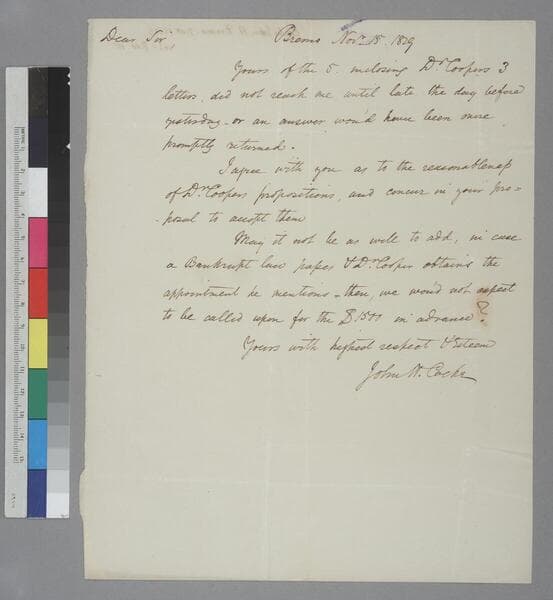 Dear Sir Bremo Nov. 18. 1819
Yours of the 5. inclosing Dr. Coopers 3
letters, did not reach me until late the day before
yesterday - or an answer wou'd have been more
promptly returned.
I agree with you as to the reasonableness
of Dr. Coopers propositions, and concur in your pro=
=posal to accept them
May it not be as well to add, in case
a Bankrupt law passes & Dr. Cooper obtains the
appointment he mentions - then, we wou'd not expect
to be called upon for the $1500 in advance?
Yours with highest respect & Esteem
John H. Cocke